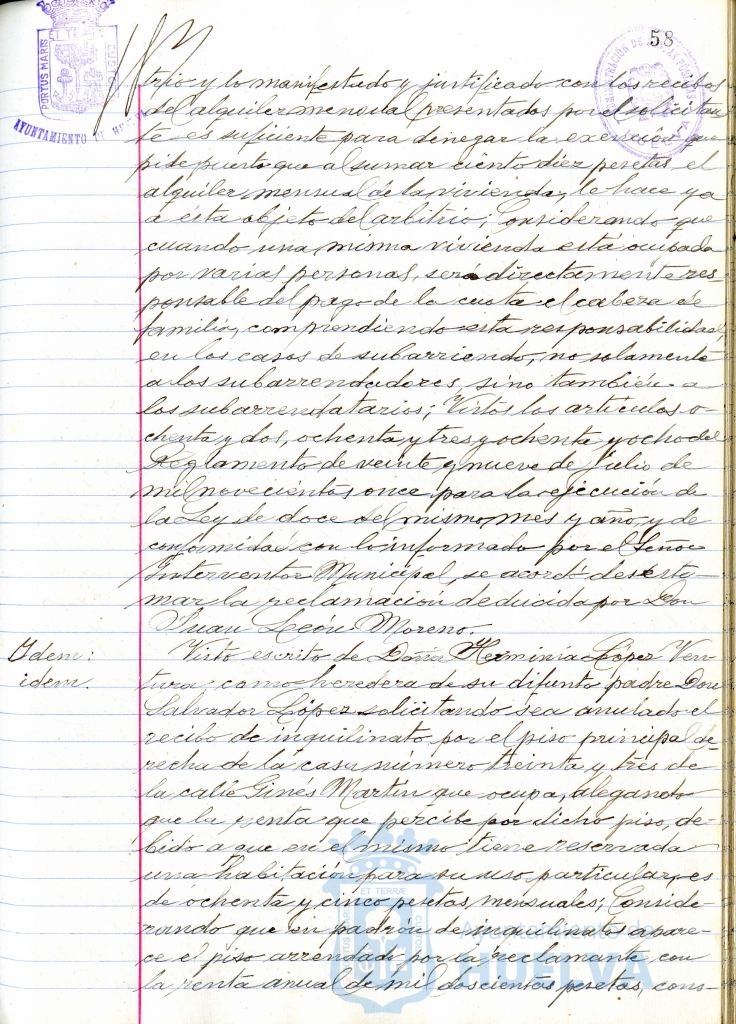 58
PORTUS MARIS ET TERRAE CUSTODIA
AYUNTAMIENTO DE HUELVA
trio y lo manifestado y justificado con los recibos
del alquiler mensual presentados por el solicitan
te es suficiente para denegar la exención que
pide puesto que al sumar ciento diez pesetas el
alquiler mensual de la vivienda, le hace ya
a ésta objeto del arbitrio; Considerando que
cuando una misma vivienda está ocupada
por varias personas, será directamente res-
ponsable del pago de la cuota el cabeza de
familia, comprendiendo esta responsabilidad,
en los casos de subarriendo, no solamente
a los subarrendadores, sino también a
los subarrendatarios; Vistos los artículos o-
chenta y dos, ochenta y tres y ochenta y ocho del
Reglamento de veinte y nueve de Julio de
mil novecientos once para la ejecución de
la Ley de doce del mismo mes y año, y de
conformidad con lo informado por el Señor
Interventor Municipal, se acordó desesti-
mar la reclamación deducida por Don
Juan León Moreno.
Idem:
idem.
Visto escrito de Doña Herminia López Ven-
tura, como heredera de su difunto padre Don
Salvador López solicitando sea anulado el
recibo de inquilinato por el piso principal de-
recha de la casa número treinta y tres de
la calle Ginés Martín que ocupa, alegando
que la renta que percibe por dicho piso, de-
bido a que en el mismo tiene reservada
una habitación para su uso particular, es
de ochenta y cinco pesetas mensuales; Conside-
rando que en padrón de inquilinatos apare-
ce el piso arrendado por la reclamante con
la renta anual de mil doscientas pesetas, cons-
Ayuntamiento de
HUELVA